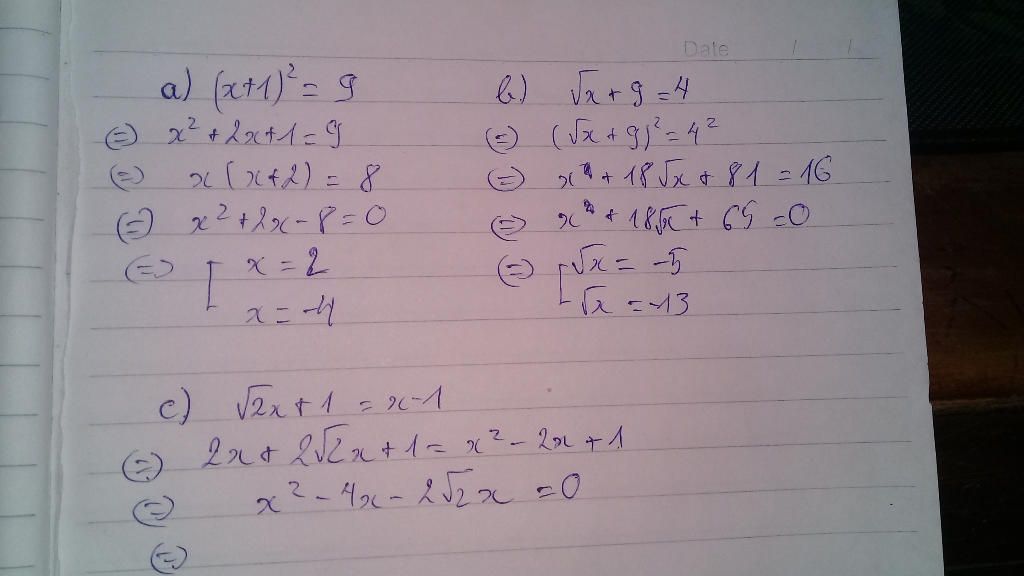 Date / /
a) (x+1)² = 9
⇔ x² + 2x+1 = 9
⇔ x(x+2) = 8
⇔ x² + 2x - 8 = 0
⇔ [ x = 2
x = -4
b) √x + 9 = 4
⇔ (√x + 9)² = 4²
⇔ x + 18√x + 81 = 16
⇔ x + 18√x + 65 = 0
⇔ [ √x = -5
√x = -13
c) √2x + 1 = x-1
⇔ 2x + 2√2x + 1 = x² - 2x + 1
⇔ x² - 4x - 2√2x = 0
⇔